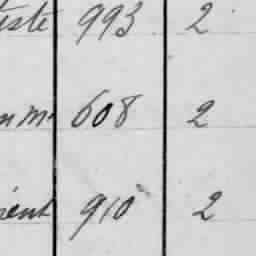 iste 993 2
mm. 608 2
ient 910 2